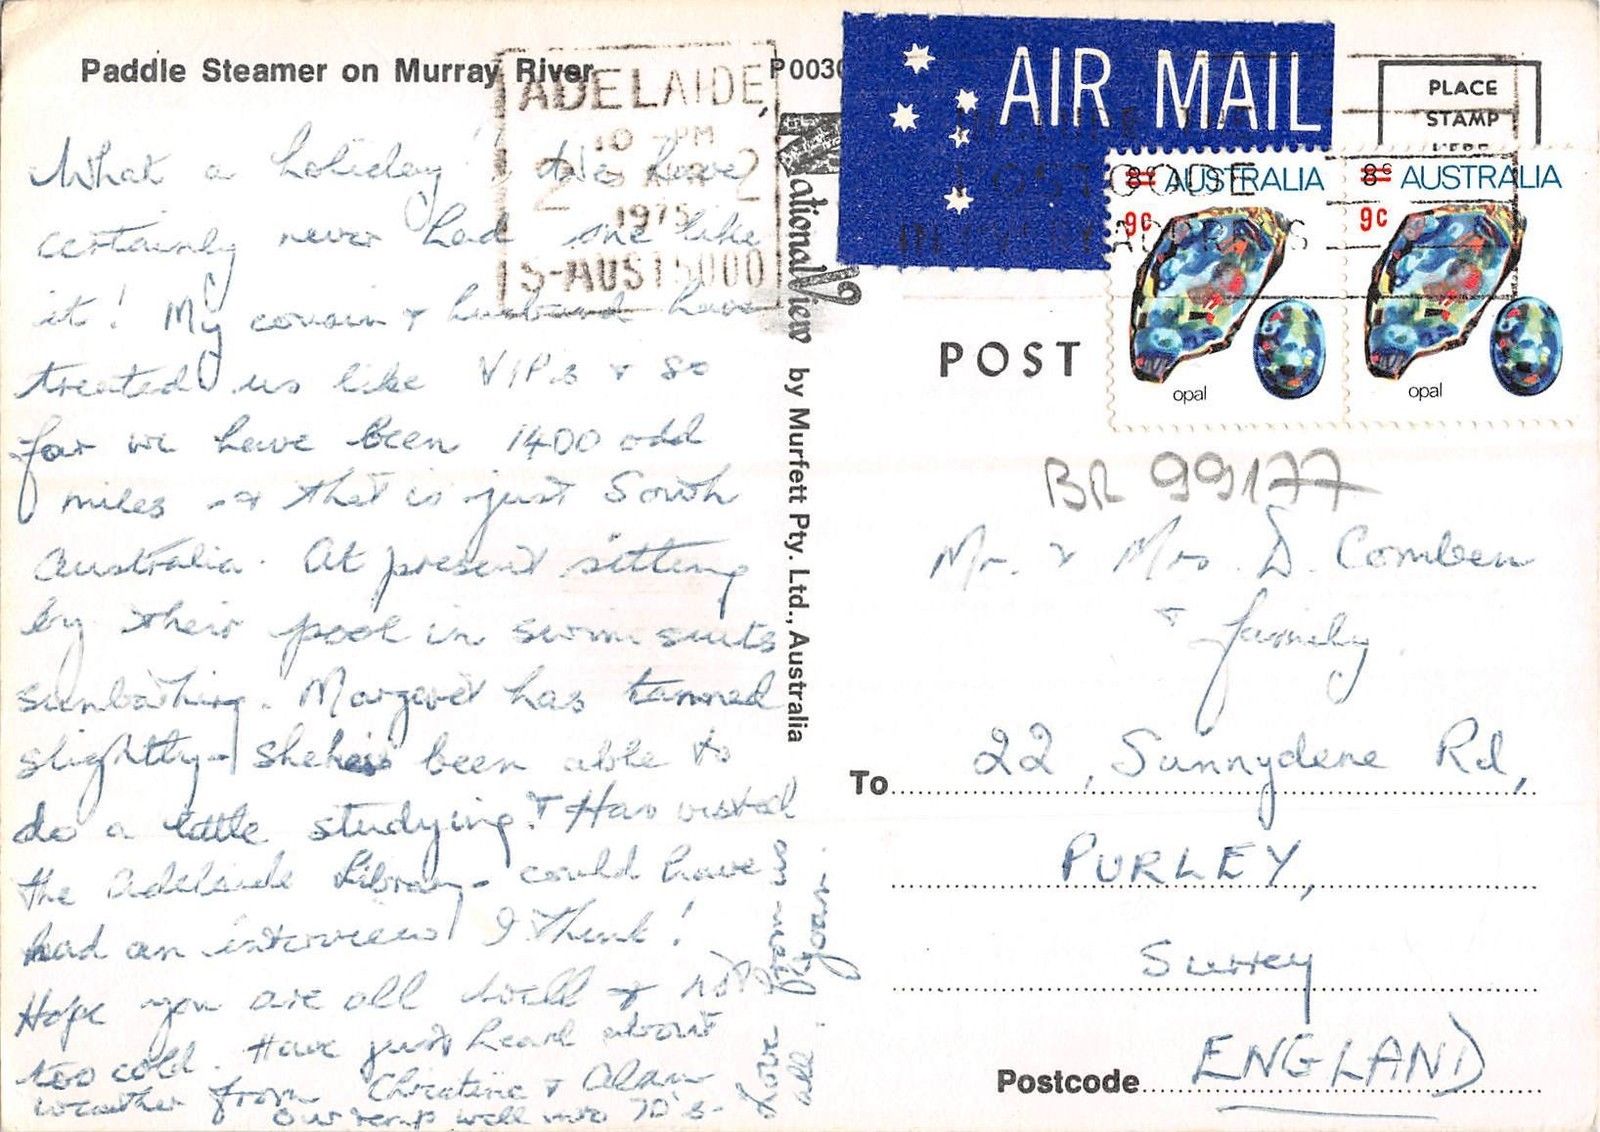 Paddle Steamer on Murray River
What a holiday! We have
certainly never had one like
it! My cousin & husband have
treated us like VIP.s & so
far we have been 1400 odd
miles & that is just South
Australia. At present sitting
by their pool in swim suits
sunbathing. Margaret has tanned
slightly & she has been able to
do a little studying! & Has visited
the Adelaide Library - could have
had an interview I think!
Hope you are all well & not
too cold. Have just heard about
weather from Christine & Alan
our temp well into 70's -
Love from S
all. Joan.
ADELAIDE,
10 - PM
2 1975 2
S-AUST 5000
P0030
National View by Murfett Pty. Ltd., Australia
AIR MAIL
PLACE
STAMP
HERE
POSTCODE
8c AUSTRALIA
9c
opal
8c AUSTRALIA
9c
opal
POST
BR 99177
Mr. & Mrs. D. Comben
& family.
To 22, Sunnydene Rd,
PURLEY,
Surrey
Postcode ENGLAND